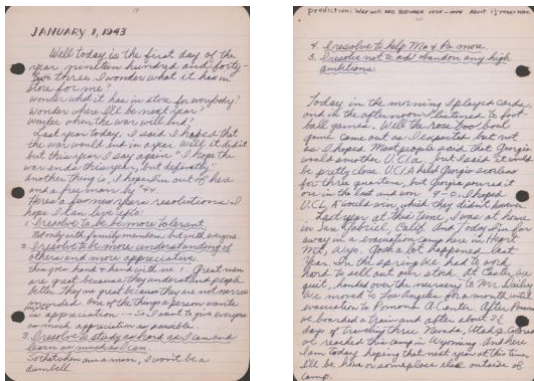 JANUARY 1, 1943
Well today is the first day of the
year nineteen hundred and forty-
three I wonder what it has in
store for me?
wonder what it has in store for everybody?
wonder where I'll be next year?
wonder when the war will end?
Last year today, I said I hoped that
the war would end in a year. Well, it didn't
but this year I say again "I hope the
war ends this year, but definitely."
Another thing is, I hope I'm out of here
and a free man by '44.
Here's a few new years resolutions I
hope I can live up to:
1. I resolve to be more tolerant
Not only with family members but with everyone
2. I resolve to be more understanding of
others and more appreciative
hand & hand with no 1. Great men
are great because they understand people
better. They are great because they are not narrow
minded. One of the things a person wants
is appreciation --- So I want to give everyone
as much appreciation as possible.
3. I resolve to study as hard as I can and
learn as much as I can.
So that when I'm a man, I won't be a
dumbell
Prediction: War will end
4. I resolve to help Ma & Pa more
5. I resolve not to abandon any high
ambitions
Today in the morning I played cards,
and in the afternoon I listened to foot
ball games. Well the rose bowl
game came out as I expected but not
as I hoped. Most people said that Georgia
would smother U.C.L.A. but I said it would
be pretty close. UCLA held Georgia scoreless
for three quarters, but Georgia
on in the last and won. I hoped
U.C.L.A. would win, which they didn't however.
Last year at this time, I was at home
in San Gabriel, Calif. And today I'm far
away in a evacuation camp here in Heart
Mt., Wyo. Gosh a lot happened last
year. In the spring we had to work
hard to sell out our stock. At Easter we
quit, handed over the nursery to Mr. Dailey
We moved to Los Angeles for a month until
evacuation to Pomona A. Center. After Pomona
we boarded a train and after about
days of traveling thru Nevada, Utah & Colorado
we reached this camp in Wyoming. And here
I am today hoping that next year at this time,
I'll be home or someplace else outside of
camp.